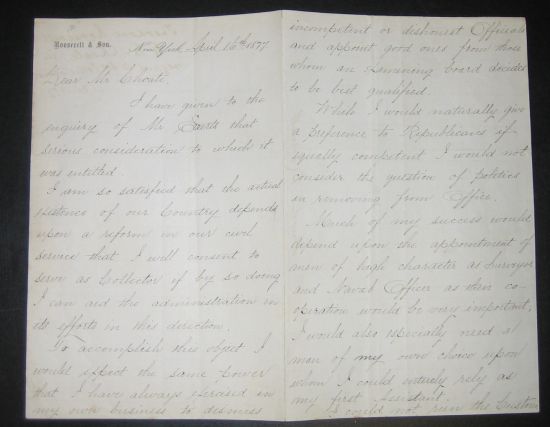 Roosevelt & Son.
New York April 16th 1877
Dear Mr Choate
I have given to the
enquiry of Mr Evarts that
serious consideration to which it
was entitled.
I am so satisfied that the actual
existence of our Country depends
upon a reform in our civil
service that I will consent to
serve as Collector if by so doing
I can aid the administration in
its efforts in this direction.
To accomplish this object I
would expect the same power
that I have always exercised in
my own business to dismiss
incompetent or dishonest Officials
and appoint good ones from those
whom an Examining board decides
to be best qualified.
While I would naturally give
a preference to Republicans if
equally competent I would not
consider the question of politics
in removing from Office.
Much of my success would
depend upon the appointment of
men of high character as Surveyor
and Naval Officer as their co-
operation would be very important;
I would also especially need a
man of my own choice upon
whom I could entirely rely as
my first Assistant.
I could not run the Custom